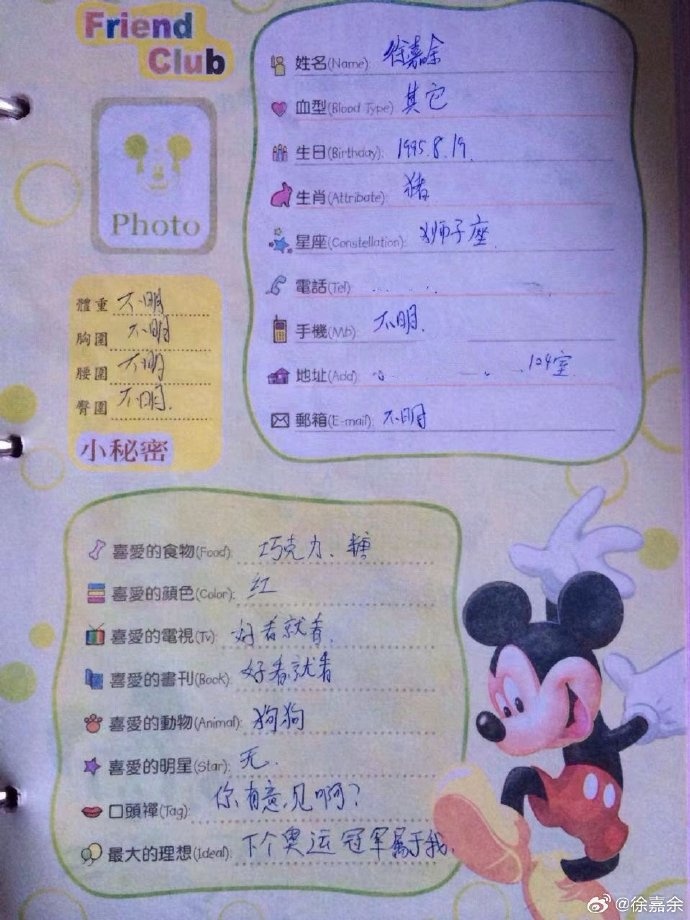 Friend
Club
Photo
姓名(Name): 徐嘉余
血型(Blood Type) 其它
生日(Birthday): 1995.8.19.
生肖(Attribute) 猪
星座(Constellation): 狮子座
電話(Tel)
手機(Mb) 不明.
地址(Add) 124室
郵箱(E-mail) 不明
體重 不明
胸圍 不明
腰圍 不明
臀圍 不明.
小秘密
喜愛的食物(Food): 巧克力、糖
喜愛的顏色(Color): 红
喜愛的電視(Tv): 好看就看.
喜愛的書刊(Book): 好看就看
喜愛的動物(Animal): 狗狗
喜愛的明星(Star): 无.
口頭禪(Tag) 你有意见啊?
最大的理想(Ideal) 下个奥运冠军属于我.
@徐嘉余